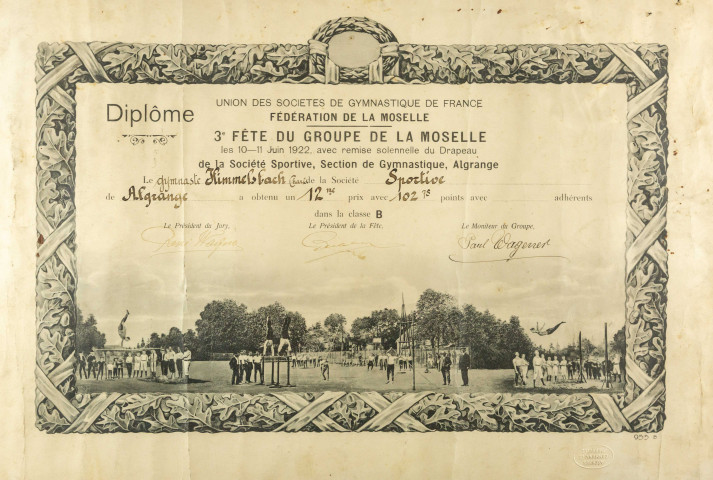 Diplôme
UNION DES SOCIETES DE GYMNASTIQUE DE FRANCE
FÉDÉRATION DE LA MOSELLE
3e FÊTE DU GROUPE DE LA MOSELLE
les 10—11 Juin 1922, avec remise solennelle du Drapeau
de la Société Sportive, Section de Gymnastique, Algrange
Le gymnaste Himmelsbach de la Société Sportive
de Algrange a obtenu un 12me prix avec 102 points avec adhérents
dans la classe B
Le Président du Jury. Le Président de la Fête. Le Moniteur du Groupe.
Paul Wagener
955